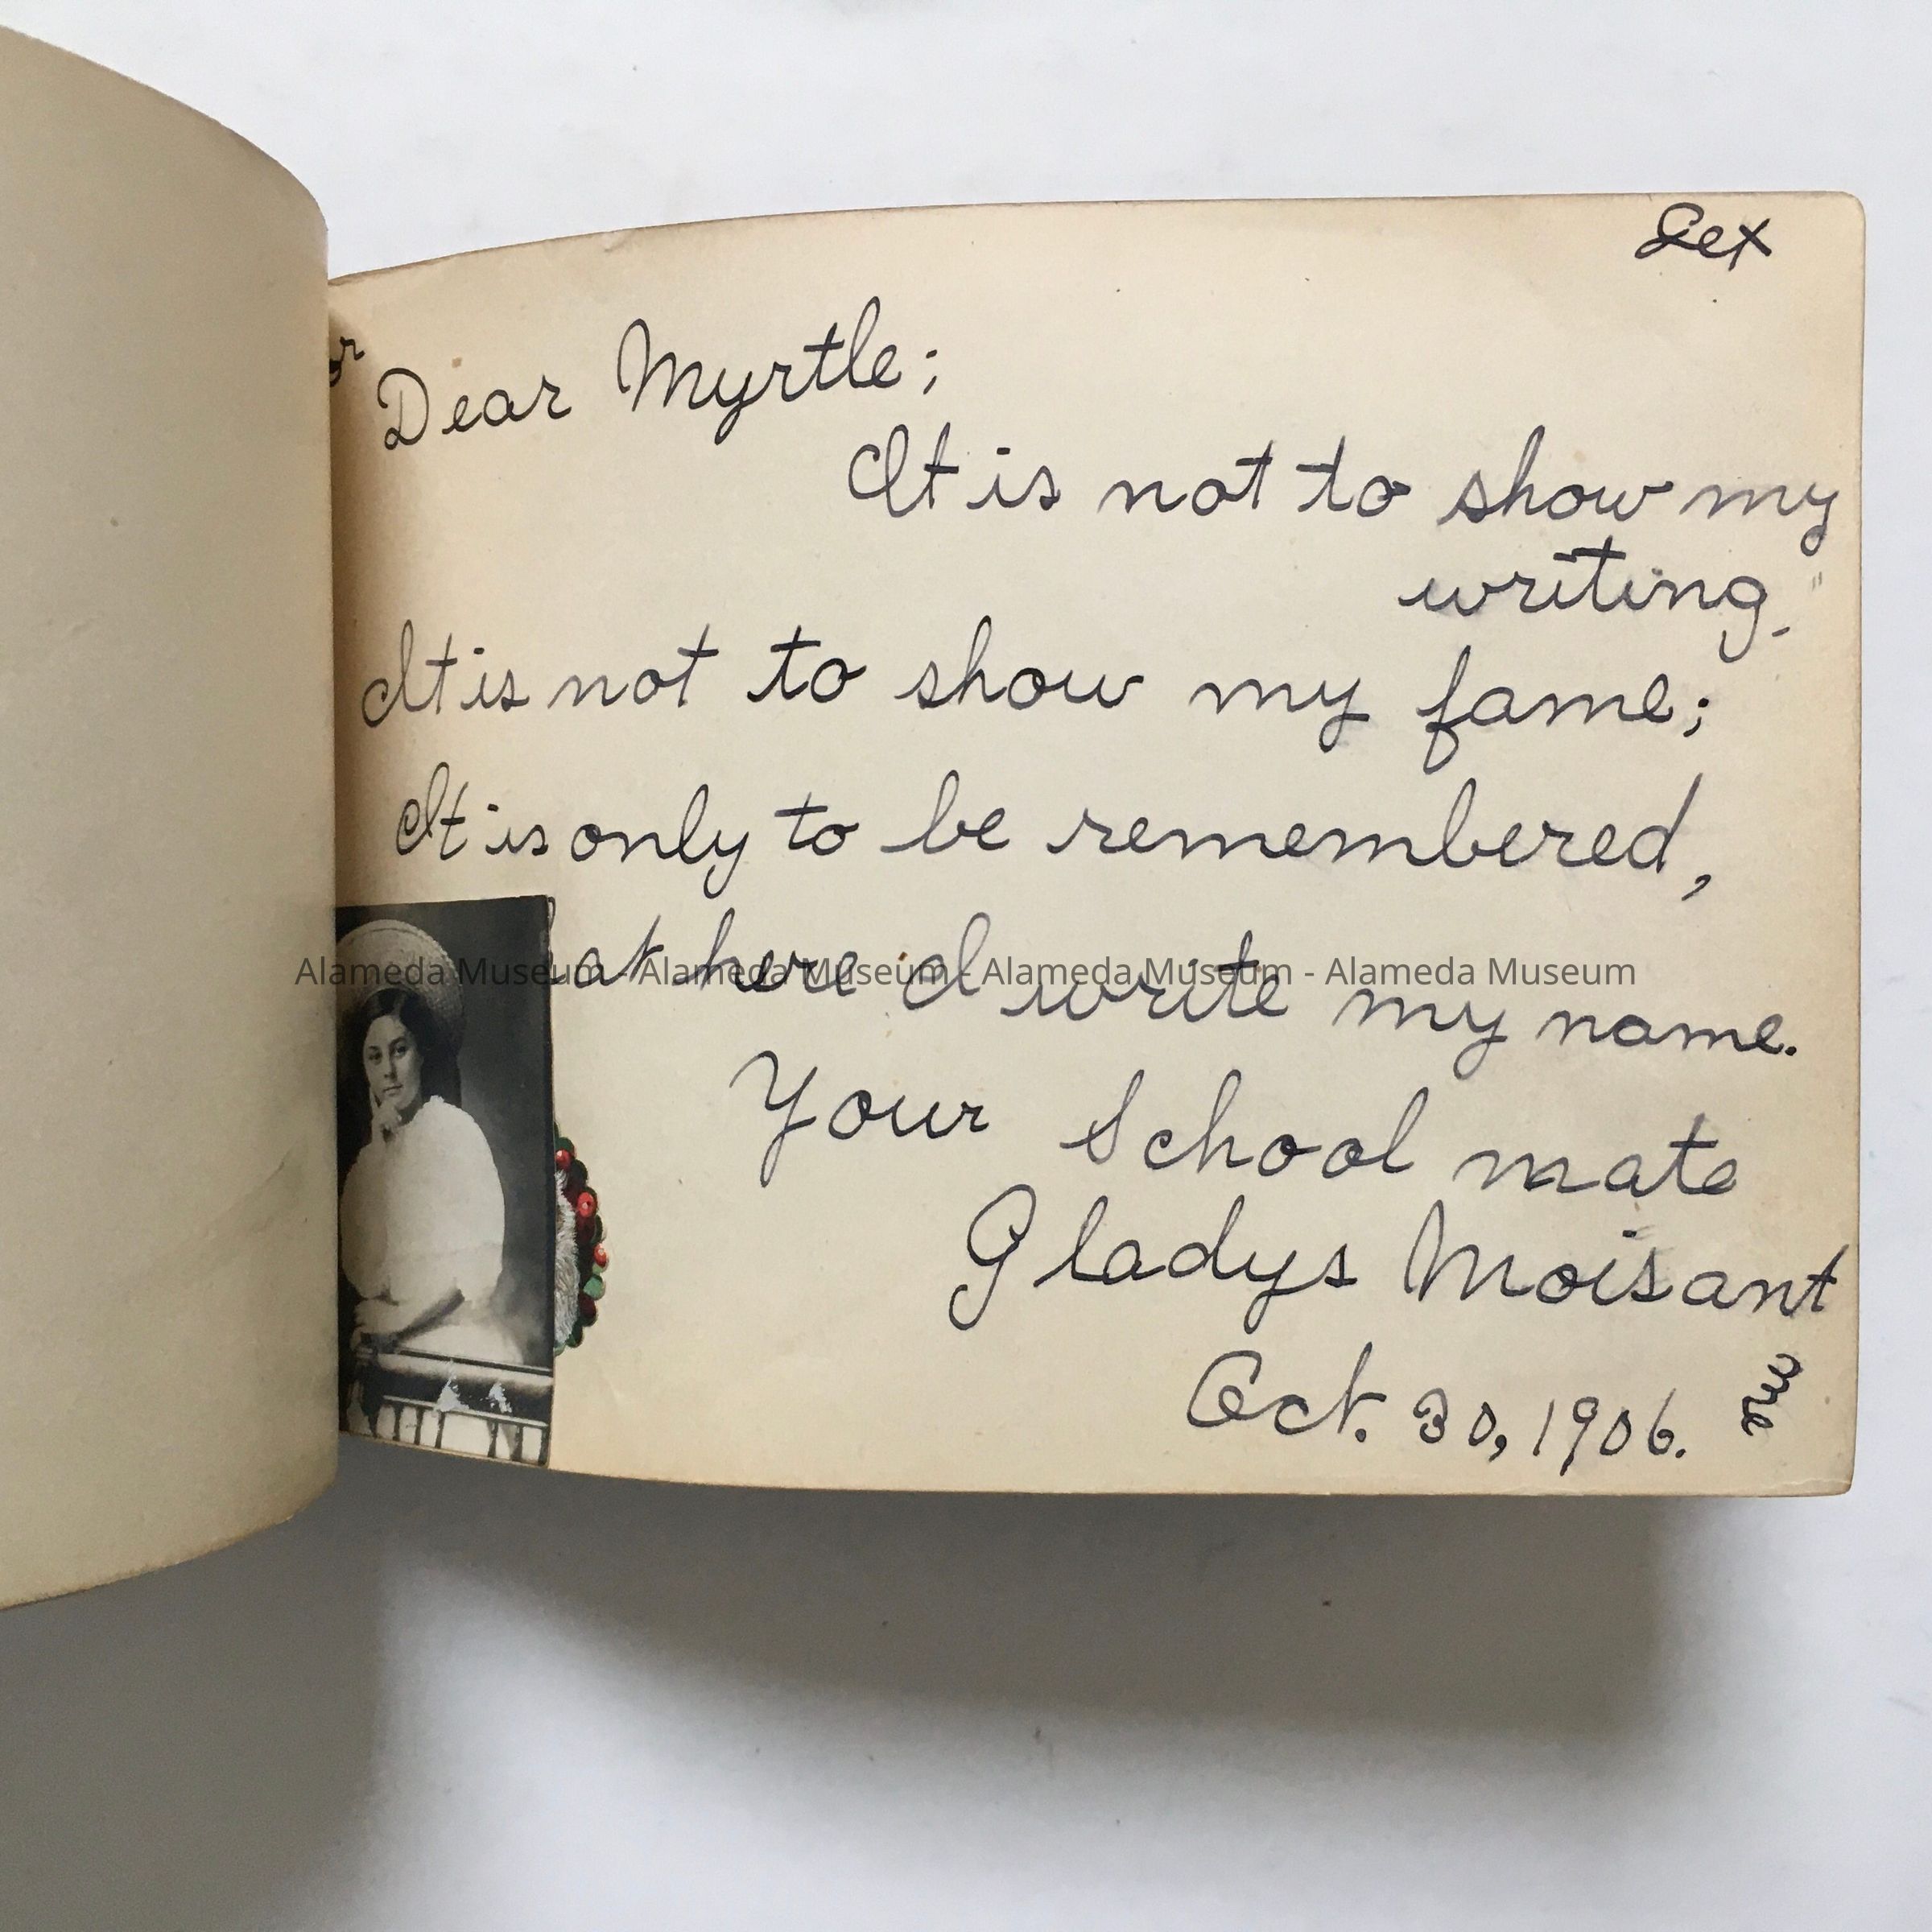 Get
Dear Myrtle;
It is not to show my
writing.
It is not to show my fame;
It is only to be remembered,
at here I write my name.
Your School mate
Gladys Moisant
Oct. 30, 1906.
me
Alameda Museum - Alameda Museum - Alameda Museum - Alameda Museum